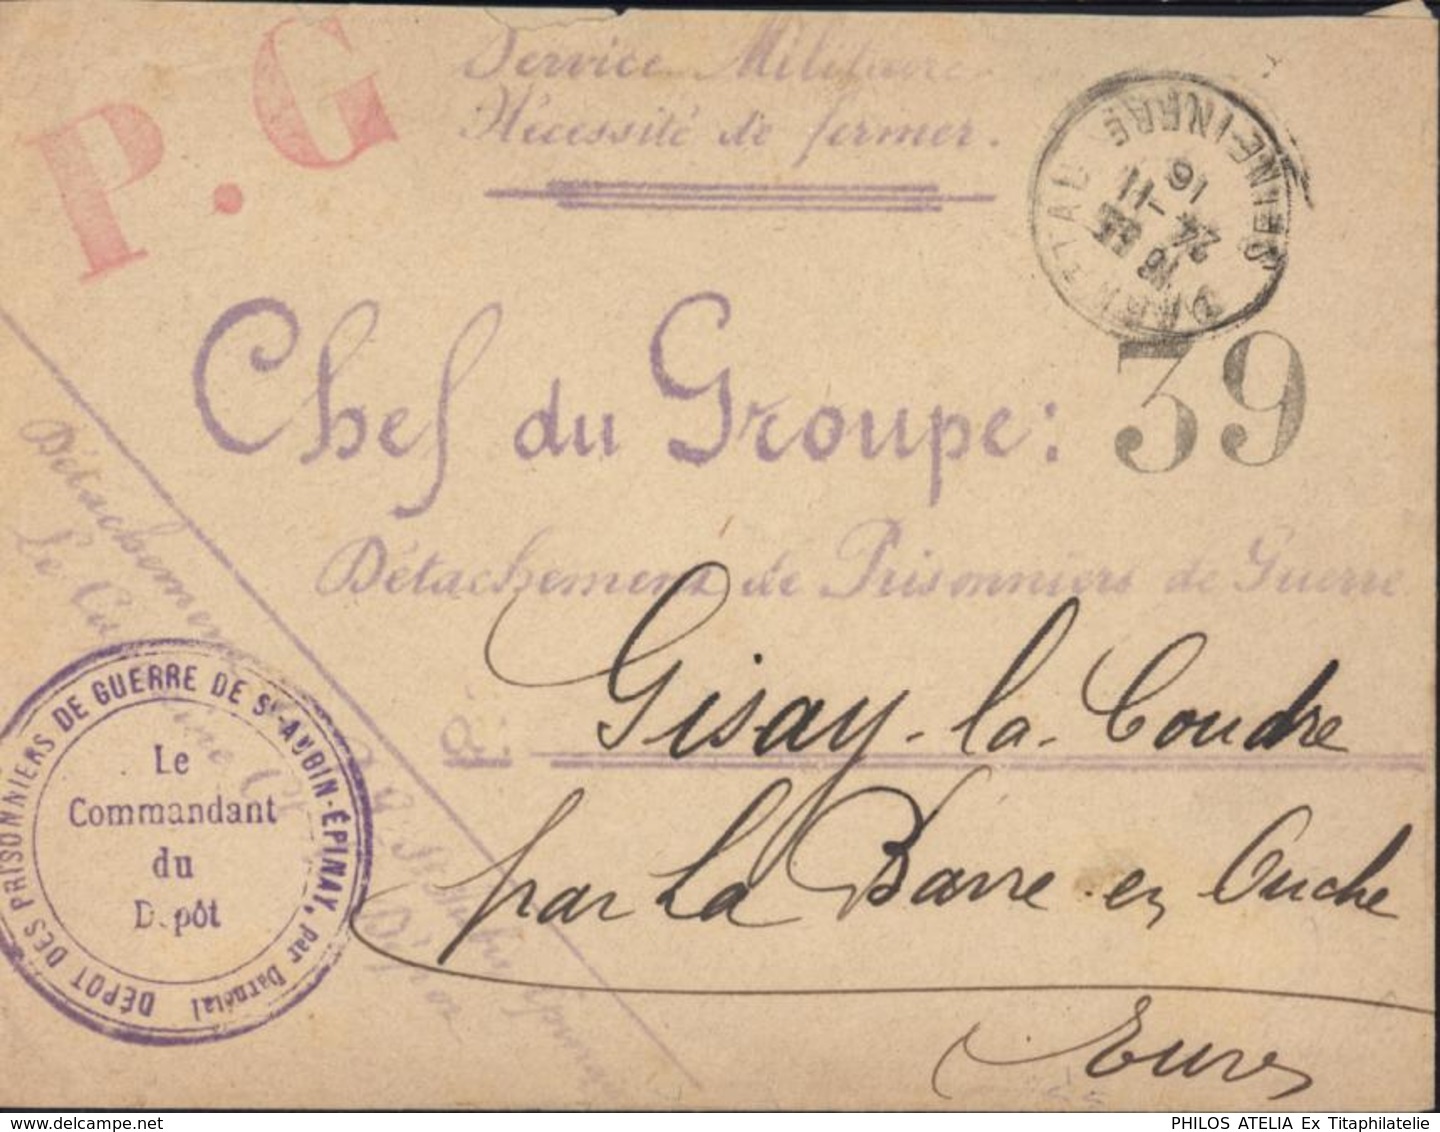 P.G
Service Militaire
Nécessité de fermer.
DARNETAL SEINE-INFRE
16
24 -11
16
Chef du Groupe : 39
Détachement de Prisonniers de Guerre
à: Gisay-la-Coudre
par La Barre en Ouche
Eure
Détachement
Le
DÉPOT DES PRISONNIERS DE GUERRE DE St-AUBIN-ÉPINAY, par Darnétal
Le
Commandant
du
Dépôt
PHILOS ATELIA Ex Titaphilatelie